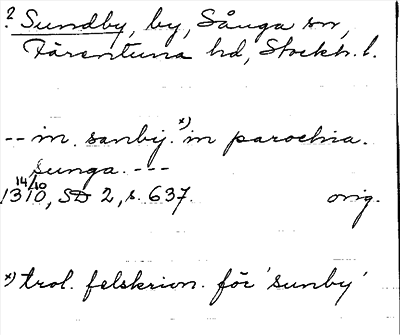 ? Sundby, by, Sånga sn,
Färentuna hd, Stockh. l.
-- in sanby. x) in parochia.
sunga. ---
14/10
1310, SD 2, s. 637. orig.
x) trol. felskrivn. för 'sunby'